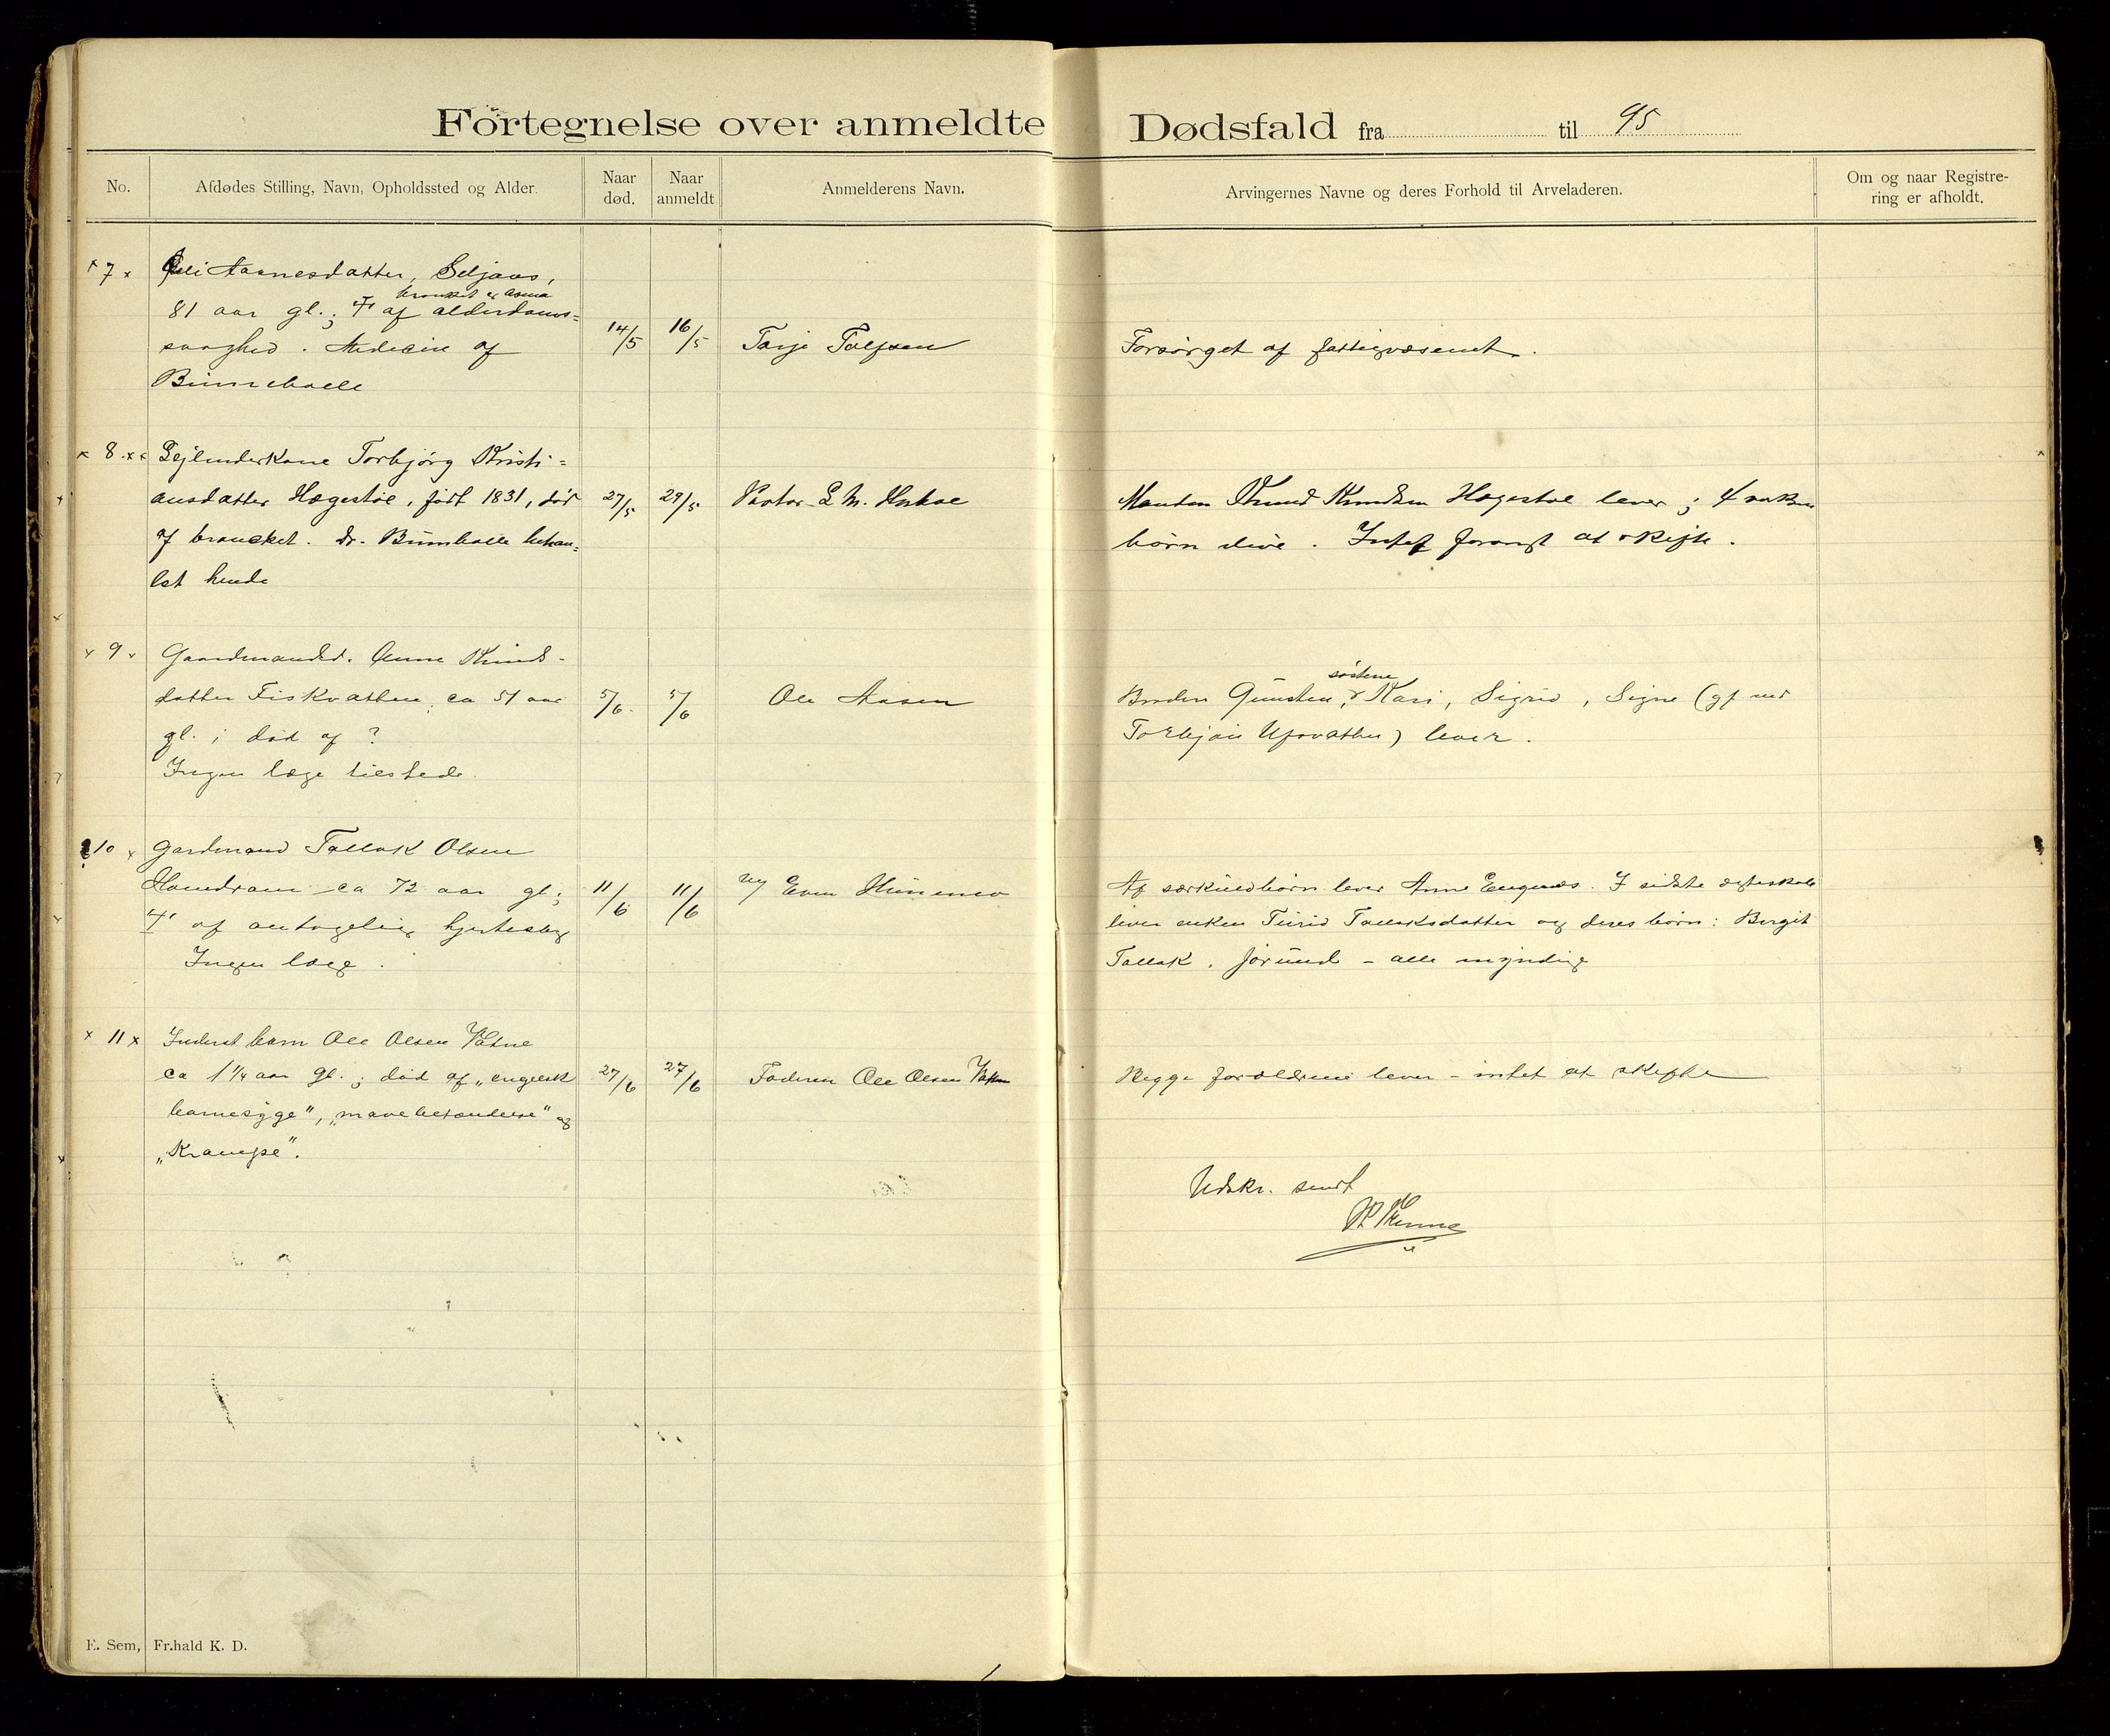 Fortegnelse over anmeldte Dødsfald fra til 95
No.
Afdødes Stilling, Navn, Opholdssted og Alder.
Naar død.
Naar anmeldt
Anmelderens Navn.
Arvingernes Navne og deres Forhold til Arveladeren.
Om og naar Registre-
ring er afholdt.
7 Aanesdatter, Seljaas,
bronket og asma
81 aar gl.; † af alderdoms=
svaghed. Medicin af
14/5 16/5 Tarje
Forsørget af fattigvæsenet.
8 Torbjörg Kristi=
ansdatter Hægestöe, födt 1831, död
af broncket. Dr. behan=
let hende
27/5 29/5
Manden Knud Knudsen Hægestöe lever; 4 voksne
börn i live. Intet at skifte.
9 Gaardmandsd. Anne Knuds-
datter Fiskvatten, ca 51 aar
gl.; död af ?
Ingen læge tilstede.
5/6 5/6 Ole Aasen
söstrene
Broderen Gunsten, & Kari, Sigrid, Signe (gf med
Torbjön Ufsvatten) lever.
10 Gardmand Tallak Olsen
ca 72 aar gl.;
† af antagelig hjerteslag
Ingen læge.
11/6 11/6 Even
Af særkuldbörn lever Anne Eugenæs. I sidste ægteskab
lever enken Turid Tallaksdatter og deres börn: Bergit
Tallak, Jörund - alle myndige
11 Inderst barn Ole Olsen Vatne
ca 1 1/4 aar gl.; död af „engelsk
barnesyge", „mavebetændelse" og
„Krampe".
27/6 27/6 Faderen Ole Olsen Vatne
Begge forældrene lever - intet at skifte
Udskr. sendt
E. Sem, Fr.hald K. D.